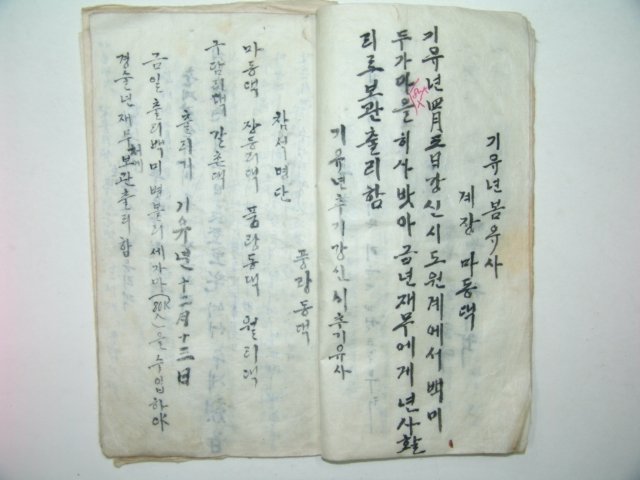 기유년봄유사
계장 마동댁
기유년 四月 五日 강신시 도원계에서 백미
두가마을 히사밧아 금년재무에게 년사활
리로 보관출리함
기유년추기강신시추기유사
풍락동댁
참석명단
마동댁 장동리댁 풍락동댁 월리댁
구담리댁 갈촌댁
출리기 기유년 十二月 十三日
금일 출리백미 병불리 세가마(80K)을 수입하야
경술년 재무 보관출리함